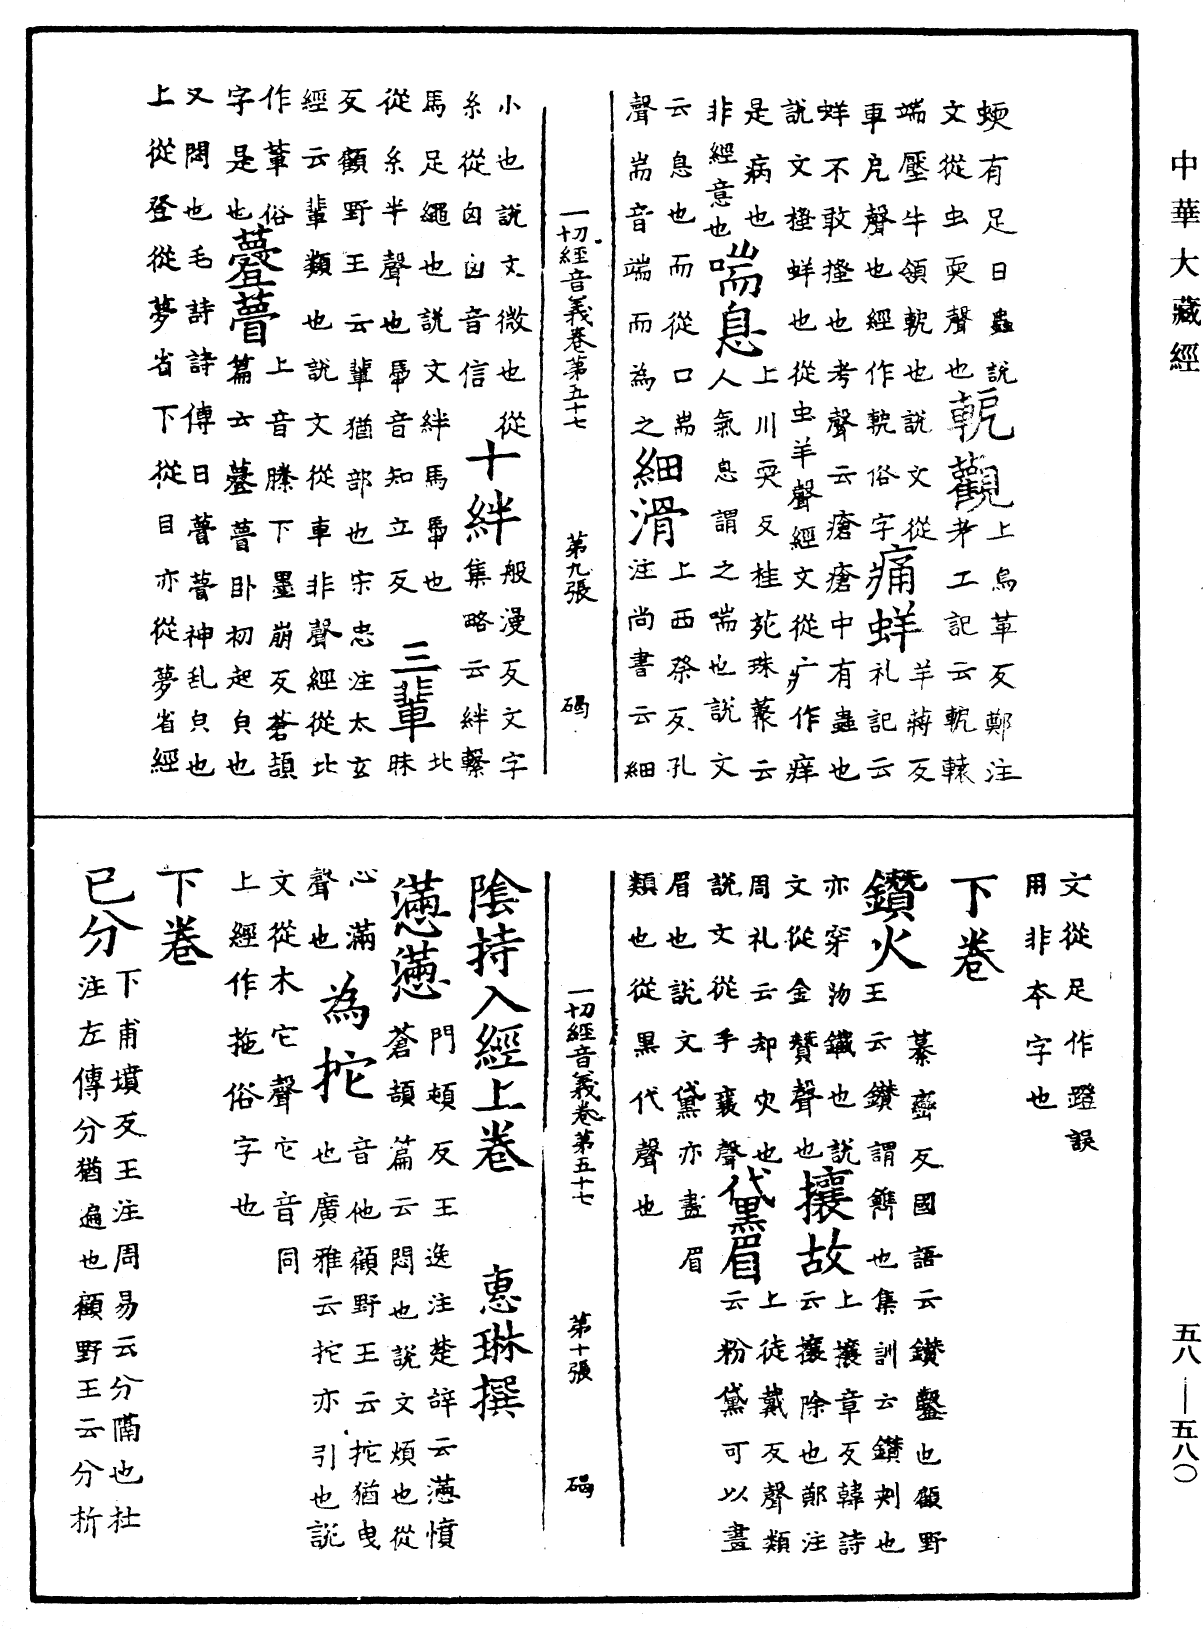 中華大藏經
蝡有足日蟲說
文從虫耎聲也
軛觀
上烏革反鄭注
考工記云軛轅
端壓牛領軛也說文從
車戹聲也經作軛俗字
痛蛘
羊蔣反
礼記云
蛘不敢搔也考聲云瘡瘡中有蟲也
說文搔蛘也從虫羊聲經文從疒作痒
是病也
非經意也
喘息
上川耎反桂苑珠藂云
人氣息謂之喘也說文
云息也而從口耑
聲耑音端而為之
細滑
上西祭反孔
注尚書云細
一切經音義卷第五十七 第九張 碣
小也說文微也從
糸從囟囟音信
十絆
般漫反文字
集略云絆繫
馬足繩也說文絆馬馽也
從糸半聲也馽音知立反
三輩
北
昧
反顧野王云輩猶部也宋忠注太玄
經云輩類也說文從車非聲經從比
作軰俗
字是也
瞢
上音䲍下墨崩反蒼頡
篇云瞢臥初起皃也
又悶也毛詩詩傳曰瞢瞢神乱皃也
上從登從夢省下從目亦從夢省經
文從足作蹬誤
用非本字也
下卷
鑽火
纂巒反國語云鑽鑿也顧野
王云鑽謂鐫也集訓云鑽刺也
亦穿物鐵也說
文從金贊聲也
攘故
上攘章反韓詩
云攘除也鄭注
周礼云却灾也
說文從手襄聲
黛眉
上徒戴反聲類
云粉黛可以畫
眉也說文黛亦畫眉
類也從黑代聲也
一切經音義卷第五十七 第十張 碣
陰持入經上卷 惠琳撰
懣懣
門頓反王逸注楚辭云懣憤
蒼頡篇云悶也說文煩也從
心滿
聲也
為拕
音他顧野王云拕猶曳
也廣雅云拕亦引也說
文從木它聲它音同
上經作拖俗字也
下卷
已分
下甫墳反王注周易云分隔也杜
注左傳分猶遍也顧野王云分析
五八—五八〇